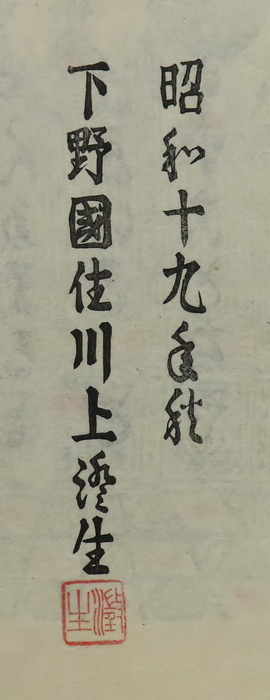 昭和十九年秋
下野國住川上澄生
澄生